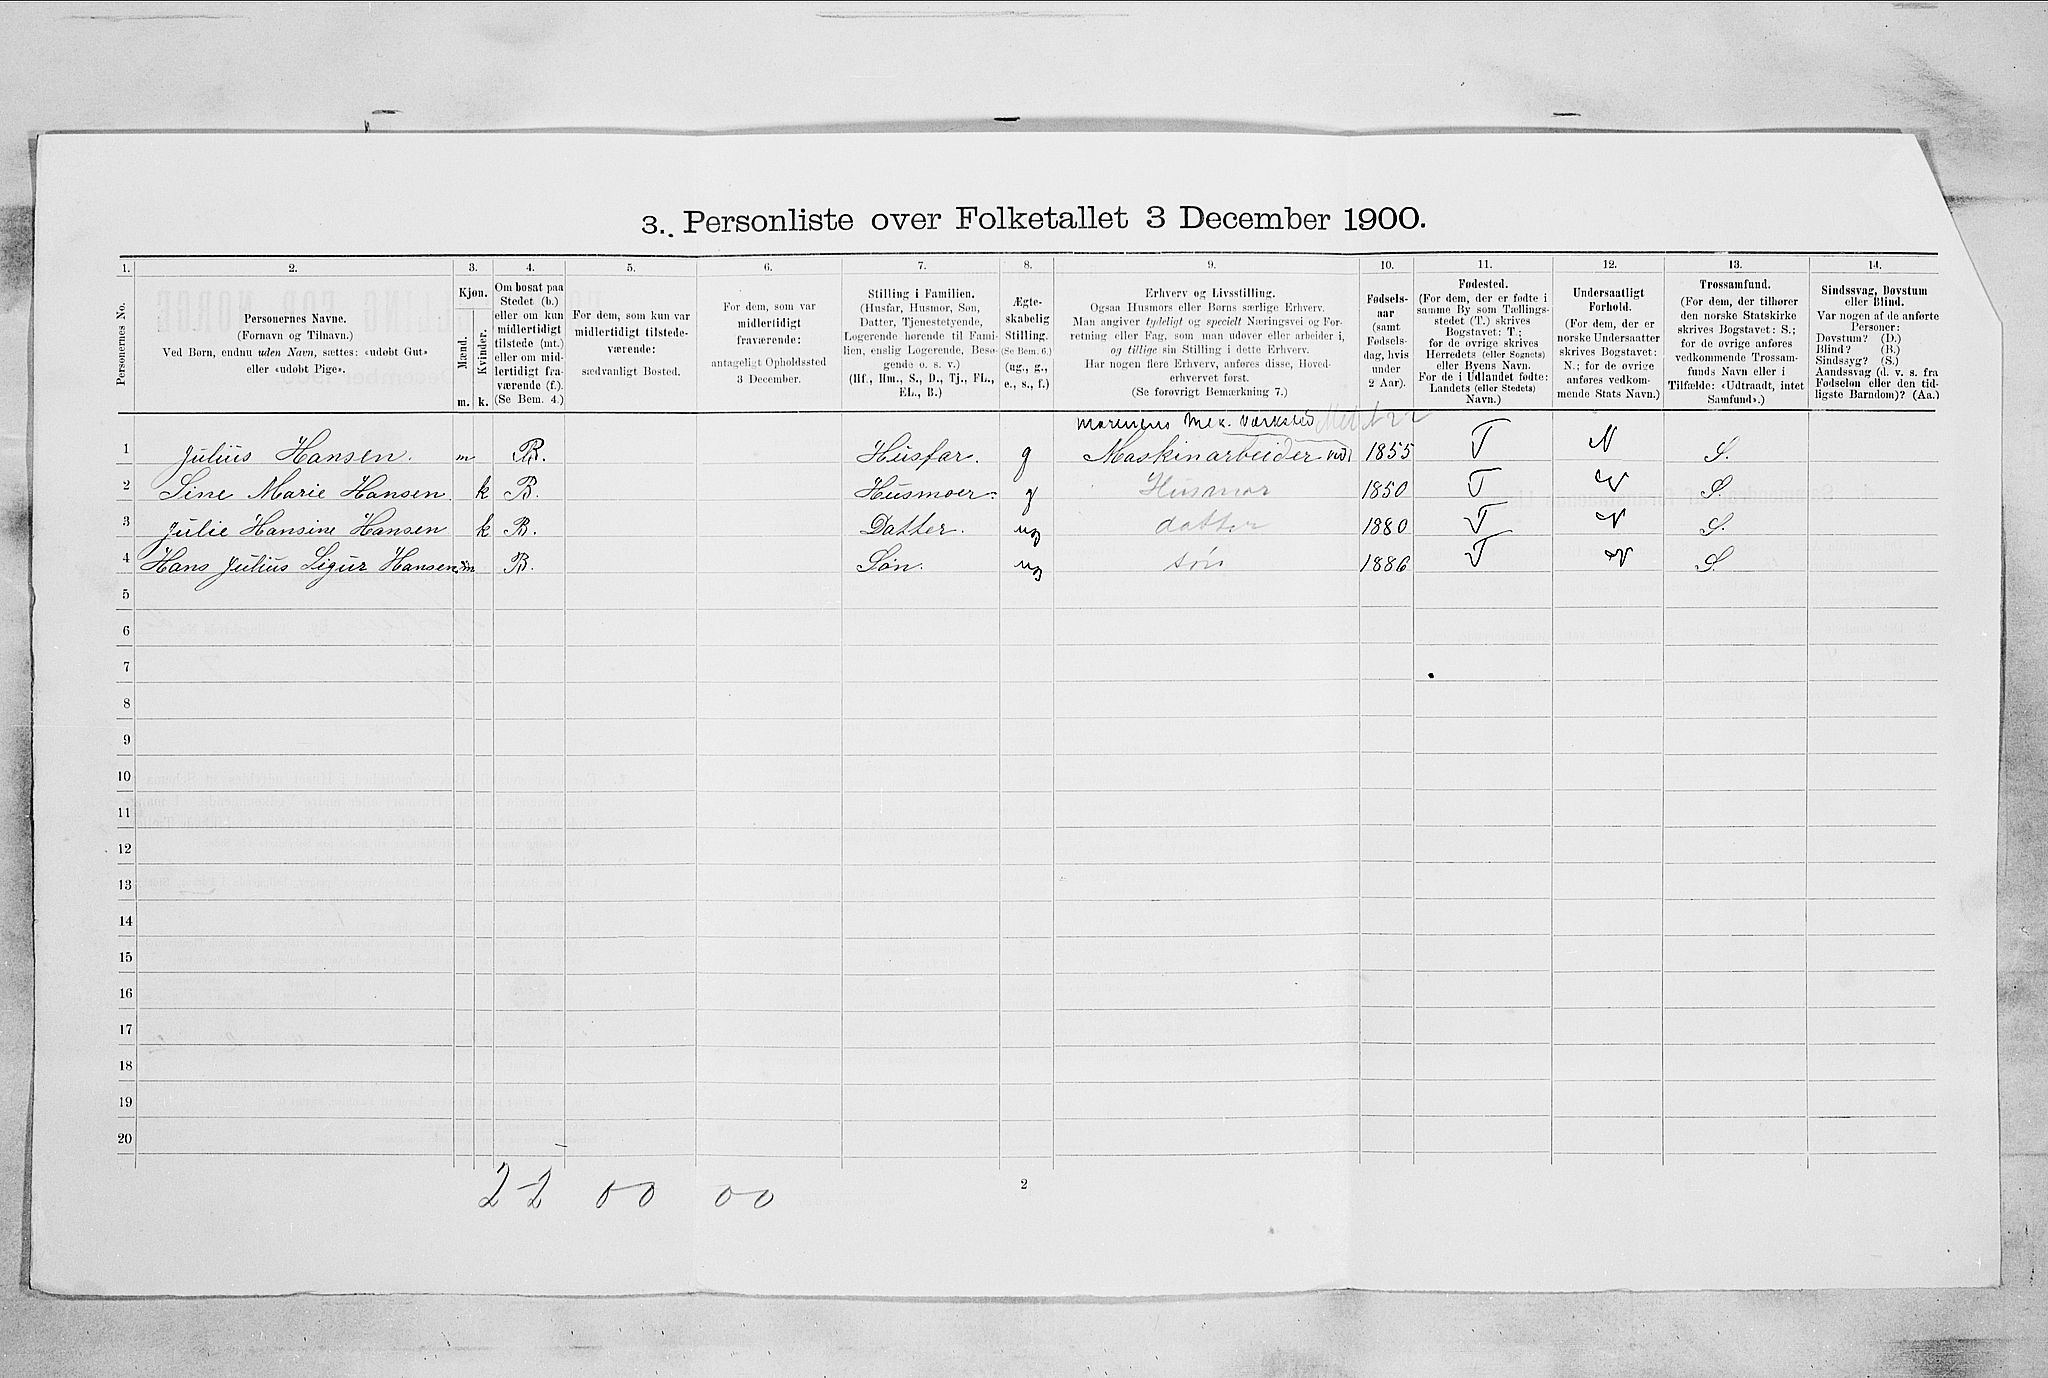 3. Personliste over Folketallet 3 December 1900.
1. 2. 3. 4. 5. 6. 7. 8. 9. 10. 11. 12. 13. 14.
Personernes No.
Personernes Navne.
(Fornavn og Tilnavn.)
Ved Børn, endnu uden Navn, sættes: «udøbt Gut»
eller «udøbt Pige».
Kjøn.
Mænd. Kvinder.
m. k.
Om bosat paa
Stedet (b.)
eller om kun
midlertidigt
tilstede (mt.)
eller om mid-
lertidigt fra-
værende (f.).
(Se Bem. 4.)
For dem, som kun var
midlertidigt tilstede-
værende:
sædvanligt Bosted.
For dem, som var
midlertidigt
fraværende:
antageligt Opholdssted
3 December.
Stilling i Familien.
(Husfar, Husmor, Søn,
Datter, Tjenestetyende,
Logerende hørende til Fami-
lien, enslig Logerende, Besø-
gende o. s. v.)
(Hf., Hm., S., D., Tj., FL.,
EL., B.)
Ægte-
skabelig
Stilling.
(Se Bem. 6.)
(ug., g.,
e., s., f.)
Erhverv og Livsstilling.
Ogsaa Husmors eller Børns særlige Erhverv.
Man angiver tydeligt og specielt Næringsvei og For-
retning eller Fag, som man udøver eller arbeider i,
og tillige sin Stilling i dette Erhverv.
Har nogen flere Erhverv, anføres disse, Hoved-
erhvervet først.
(Se forøvrigt Bemærkning 7.)
Fødsels-
aar
(samt
Fødsels-
dag, hvis
under
2 Aar).
Fødested.
(For dem, der er fødte i
samme By som Tællings-
stedet (T.) skrives
Bogstavet: T.;
for de øvrige skrives
Herredets (eller Sognets)
eller Byens Navn.
For de i Udlandet fødte:
Landets (eller Stedets)
Navn.)
Undersaatligt
Forhold.
(For dem, der er
norske Undersaatter
skrives Bogstavet:
N.; for de øvrige
anføres vedkom-
mende Stats Navn.)
Trossamfund.
(For dem, der tilhører
den norske Statskirke
skrives Bogstavet: S.;
for de øvrige anføres
vedkommende Trossam-
funds Navn eller i
Tilfælde: «Udtraadt, intet
Samfund».)
Sindssvag, Døvstum
eller Blind.
Var nogen af de anførte
Personer:
Døvstum? (D.)
Blind? (B.)
Sindssyg? (S.)
Aandssvag (d. v. s. fra
Fødselen eller den tid-
ligste Barndom)? (Aa.)
Mek. Værksted
1 Julius Hansen. m B. Husfar. g Maskinarbeider ved 1855 T N S.
2 Sine Marie Hansen. k B. Husmoer. g Husmor 1850 T N S.
3 Julie Hansine Hansen k B. Datter. ug datter 1880 T N S.
4 Hans Julius Sigur Hansen. m B. Søn. ug søn 1886 T N S.
5
6
7
8
9
10
11
12
13
14
15
16
17
18
19
20
2-2 00 00
2